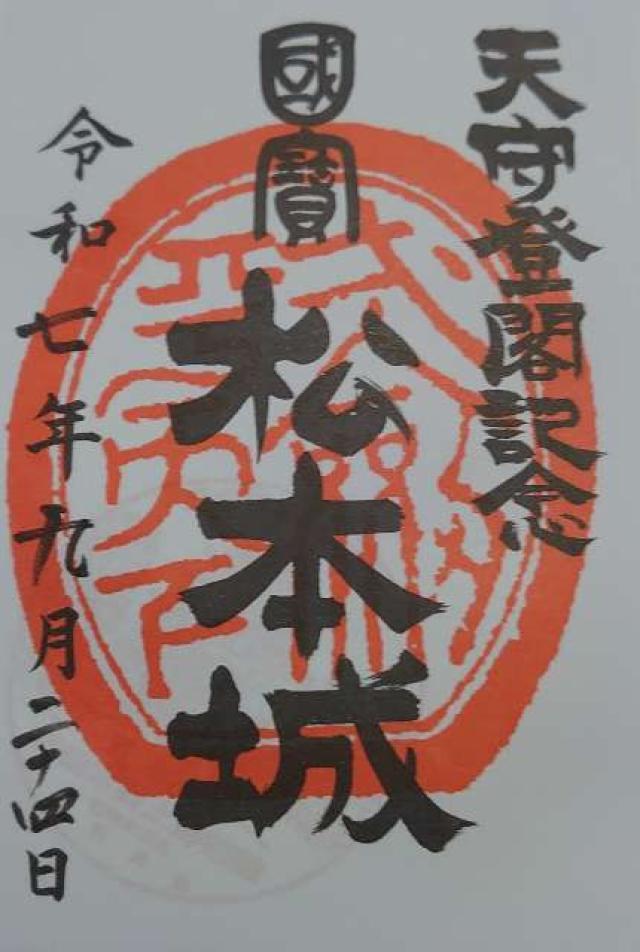 天守登閣記念
國寶
松本城
令和七年九月二十四日